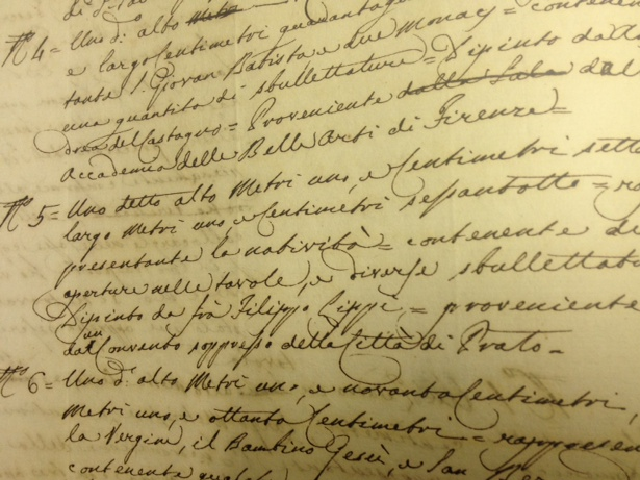 di d.
N.° 4 = Uno d.° alto
e largo Centimetri quarantaqu
tante S. Giovan Batista e due Monaci = contene
una quantita di sbullettature = Dipinto dalla
drea del Castagno = Proveniente dalla Sala dal
Accademia delle Belle Arti di Firenze =
N.° 5 = Uno detto alto Metri uno, e Centimetri sette
largo Metri uno, e Centimetri sessantotto = ra
presentante la natività = contenente di
aperture nelle tavole, e diverse sbullettatu
Dipinto da frà Filippo Lippi, = proveniente
da un Convento soppresso della Città di Prato =
N.° 6 = Uno d.° alto Metri uno, e novanta Centimetri,
Metri uno, e ottanta Centimetri = rappresen
la Vergine, il Bambino Gesù, e San
contenente